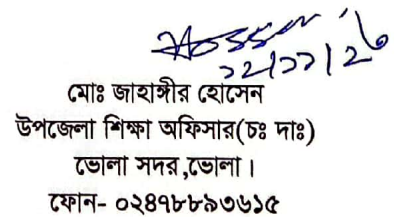 ২২/১১/২৬
মোঃ জাহাঙ্গীর হোসেন
উপজেলা শিক্ষা অফিসার(চঃ দাঃ)
ভোলা সদর,ভোলা।
ফোন- ০২৪৭৮৮৯৩৬১৫